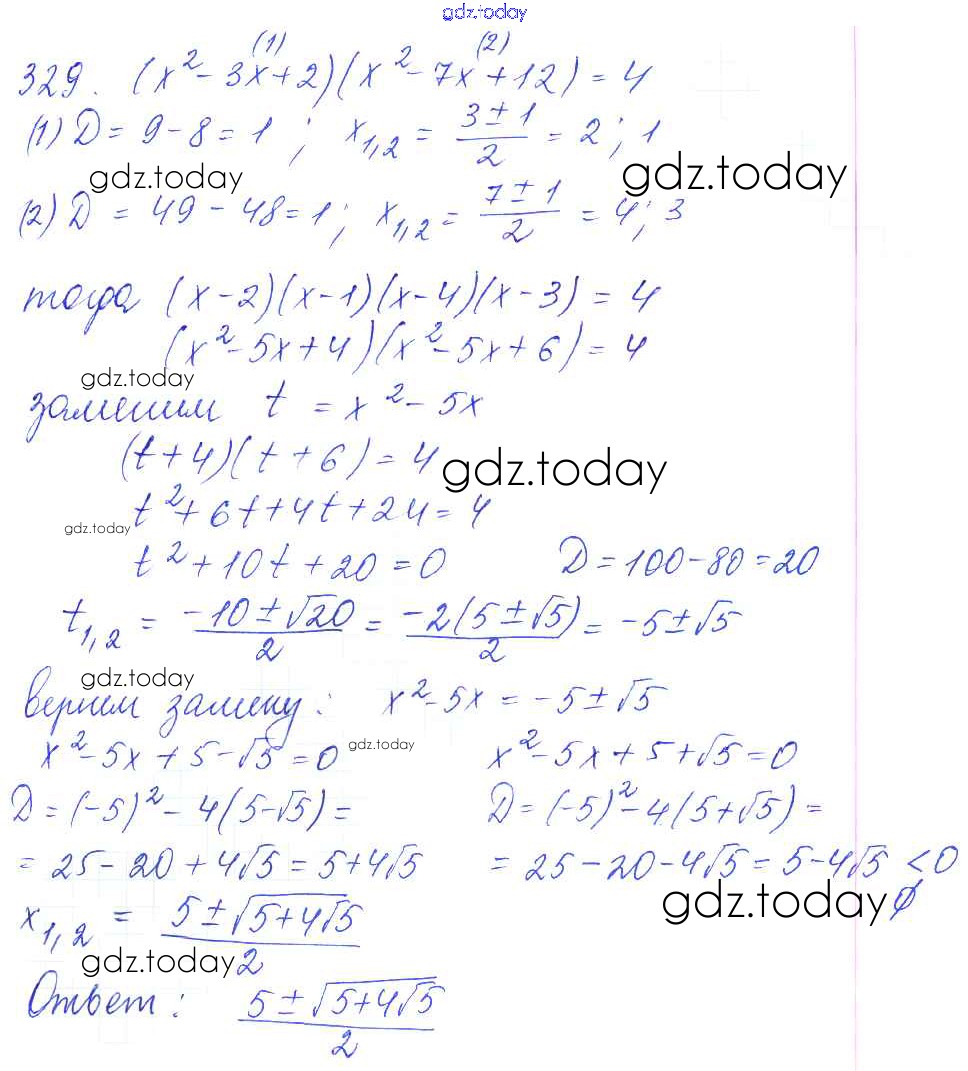 gdz.today
329. (x² - 3x + 2)(x² - 7x + 12) = 4
(1) (2)
(1) D = 9 - 8 = 1 ; x₁,₂ = (3 ± 1)/2 = 2 ; 1
gdz.today gdz.today
(2) D = 49 - 48 = 1 ; x₁,₂ = (7 ± 1)/2 = 4 ; 3
тогда (x - 2)(x - 1)(x - 4)(x - 3) = 4
(x² - 5x + 4)(x² - 5x + 6) = 4
gdz.today
заменим t = x² - 5x
(t + 4)(t + 6) = 4 gdz.today
t² + 6t + 4t + 24 = 4
gdz.today
t² + 10t + 20 = 0 D = 100 - 80 = 20
t₁,₂ = (-10 ± √20)/2 = (-2(5 ± √5))/2 = -5 ± √5
gdz.today
вернем замену : x² - 5x = -5 ± √5
x² - 5x + 5 - √5 = 0 gdz.today x² - 5x + 5 + √5 = 0
D = (-5)² - 4(5 - √5) = D = (-5)² - 4(5 + √5) =
= 25 - 20 + 4√5 = 5 + 4√5 = 25 - 20 - 4√5 = 5 - 4√5 < 0
gdz.today ∅
x₁,₂ = (5 ± √(5 + 4√5))/2
gdz.today
Ответ : (5 ± √(5 + 4√5))/2